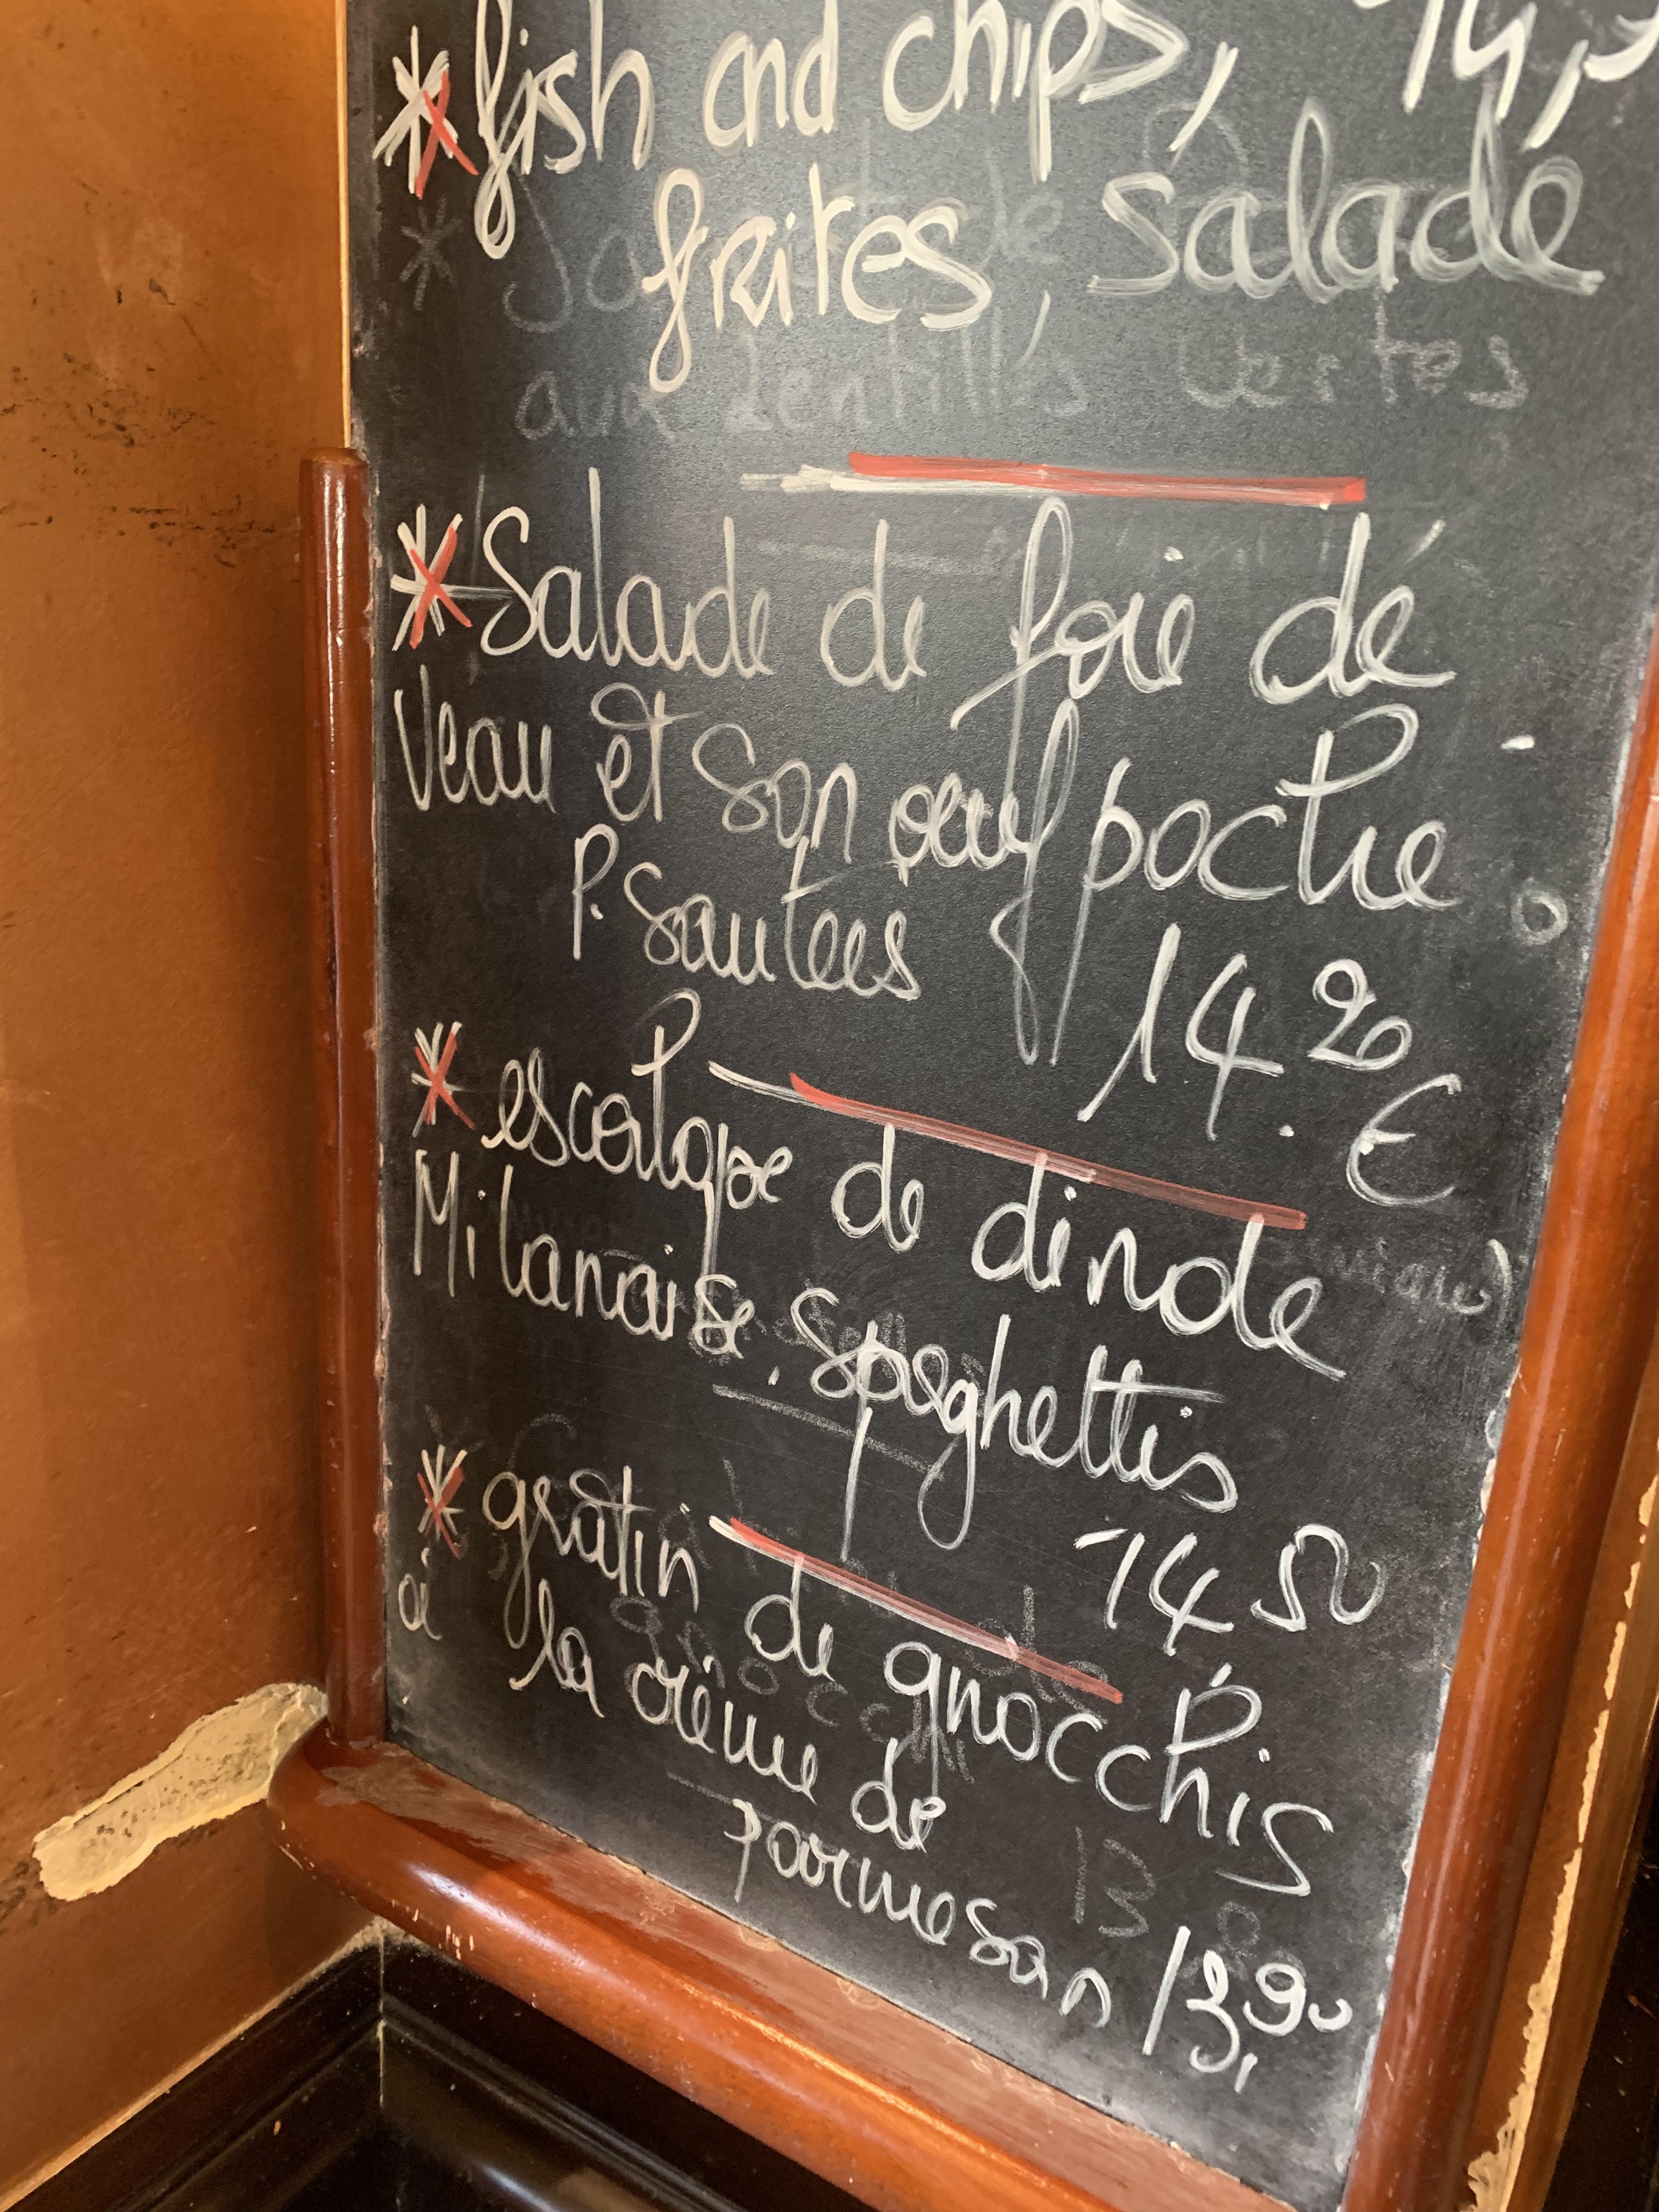 * fish and chips, 14,
frites, salade
aux lentilles vertes
* Salade de foie de
Veau et son œuf poché
P. Sautees
14.90 €
* escalope de dinde
Milanaise. Spaghettis
14,50
* gratin de gnocchis
à la crème de
parmesan 13,90